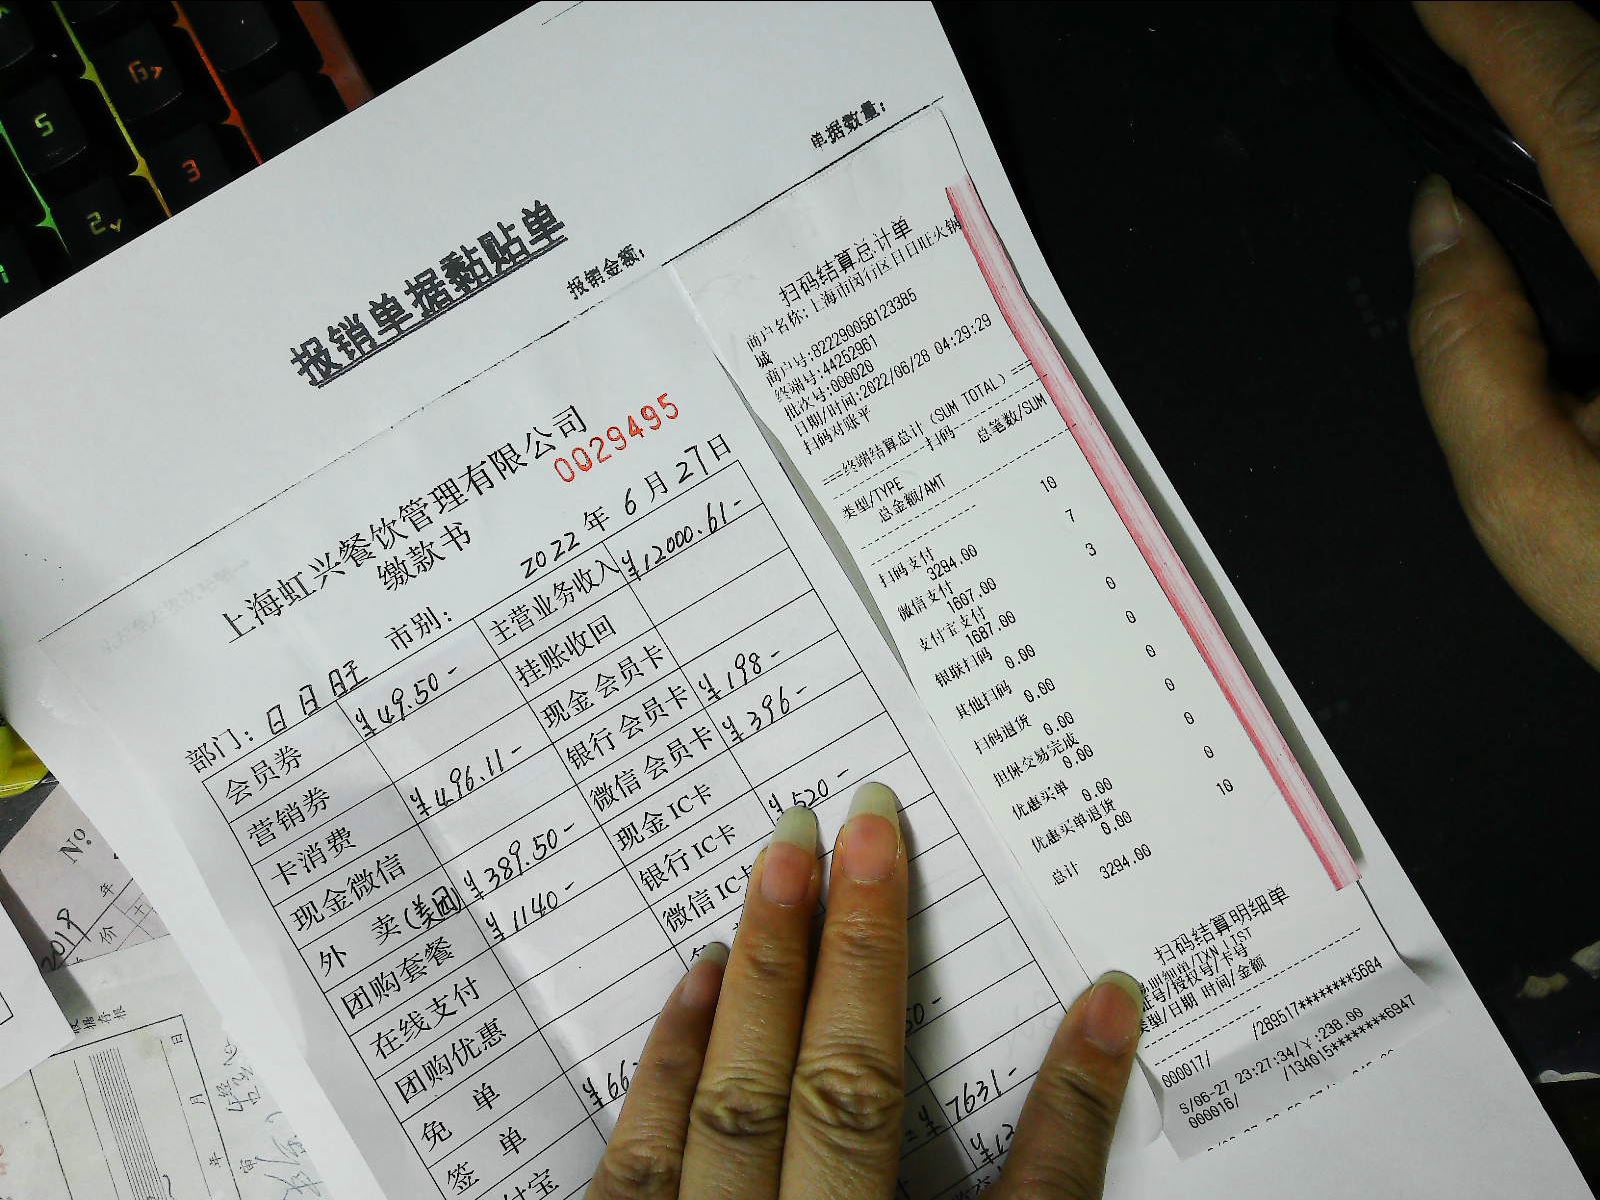 报销单据黏贴单
单据数量:
报销金额:
上海虹兴餐饮管理有限公司
缴款书
0029495
部门: 日日旺 市别: 2022年6月27日
会员券 ¥49.50- 主营业务收入 ¥12000.61-
营销券 挂账收回
卡消费 ¥496.11- 现金会员卡
现金微信 银行会员卡 ¥198-
外 卖(美团) ¥389.50- 微信会员卡 ¥396-
团购套餐 ¥1140- 现金IC卡
在线支付 银行IC卡 ¥520-
团购优惠 微信IC卡
免 单
签 单 ¥66-
50-
¥7631-
扫码结算总计单
商户名称:上海市闵行区日日旺火锅
城
商户号:8222900581233B5
终端号:44252961
批次号:000020
日期/时间:2022/06/28 04:29:29
扫码对账平
==终端结算总计(SUM TOTAL)==
扫码
类型/TYPE 总笔数/SUM
总金额/AMT
扫码支付 10
3294.00
微信支付 7
1607.00
支付宝支付 3
1687.00
银联扫码 0
0.00
其他扫码 0
0.00
扫码退货 0
0.00
担保交易完成 0
0.00
优惠买单 0
0.00
优惠买单退货 0
0.00
总计 10
3294.00
扫码结算明细单
/TXN LIST
证号/授权号/卡号
类型/日期 时间/金额
000017/ /289517********5684
S/06-27 23:27:34/¥:238.00
000016/ /134015*******6947
No
2019 年
5
6
3
2